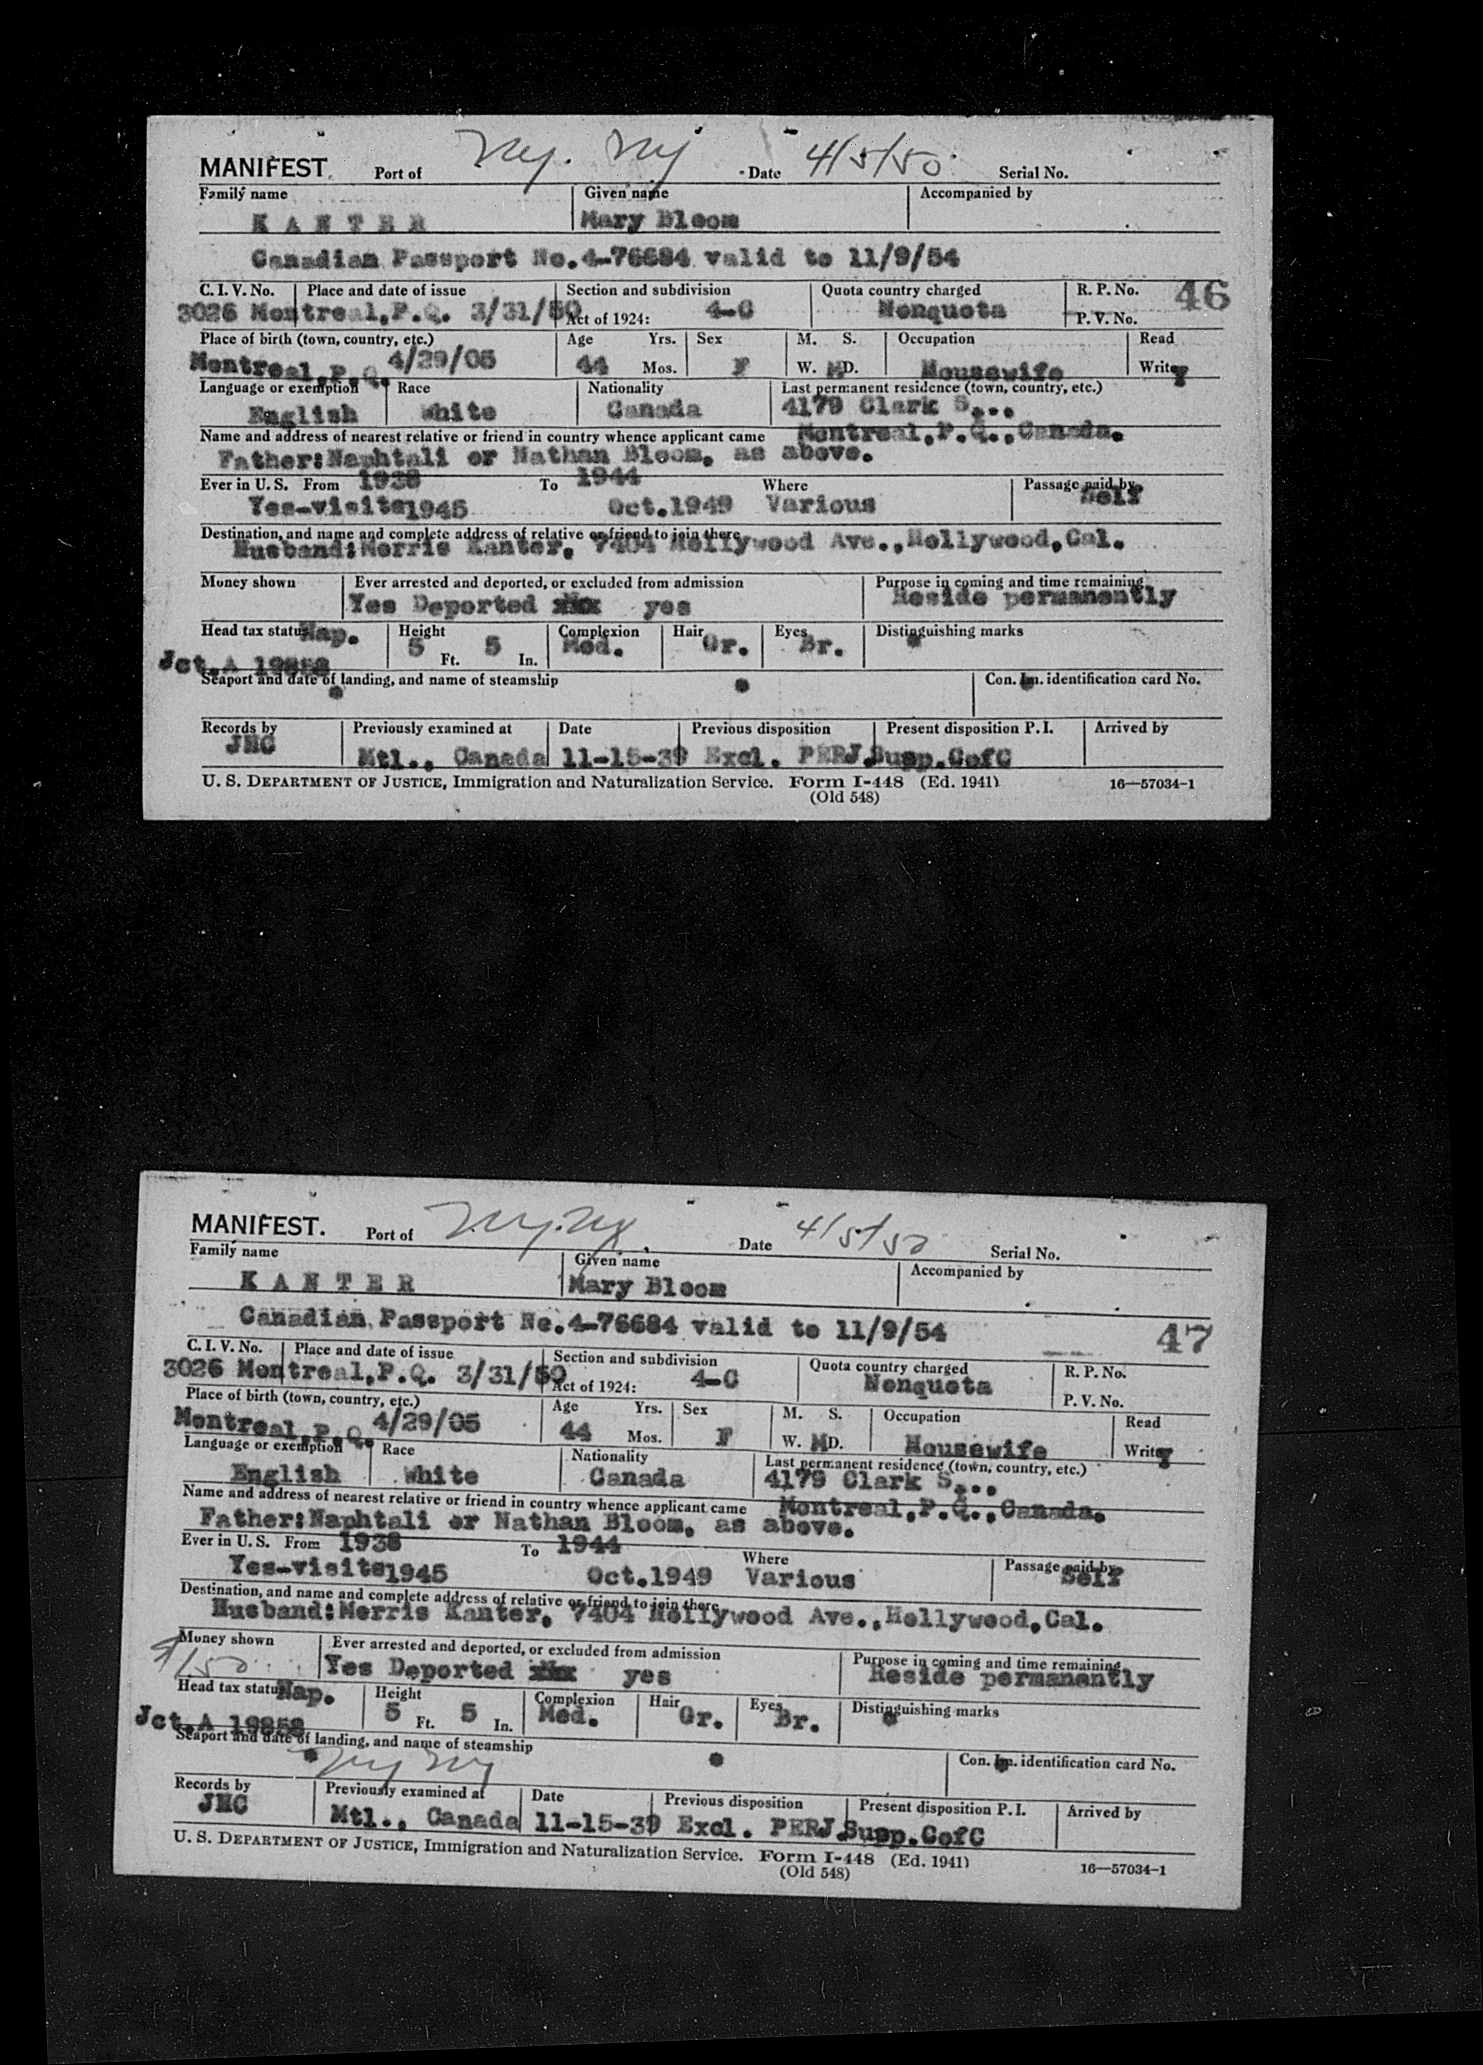 MANIFEST. Port of N.Y. NY Date 4/5/50 Serial No.
Family name Given name Accompanied by
KANTER Mary Bloom
Canadian Passport No.4-76684 valid to 11/9/54
C. I. V. No. Place and date of issue Section and subdivision Quota country charged R. P. No. 46
3026 Montreal,P.Q. 3/31/50 Act of 1924: 4-C Nonquota P. V. No.
Place of birth (town, country, etc.) Age Yrs. Sex M. S. Occupation Read
Montreal,P.Q. 4/29/05 44 Mos. F W. MD. Housewife Write y
Language or exemption Race Nationality Last permanent residence (town, country, etc.)
English White Canada 4179 Clark S...
Name and address of nearest relative or friend in country whence applicant came Montreal,P.Q.,Canada.
Father:Naphtali or Nathan Bloom, as above.
Ever in U. S. From 1938 To 1944 Where Passage paid by
Yes-visits 1945 Oct.1949 Various Self
Destination, and name and complete address of relative or friend to join there
Husband:Morris Kanter, 7404 Hollywood Ave.,Hollywood,Cal.
Money shown Ever arrested and deported, or excluded from admission Purpose in coming and time remaining
Yes Deported xxx yes Reside permanently
Head tax status Nap. Height Complexion Hair Eyes Distinguishing marks
5 Ft. 5 In. Med. Gr. Br.
Jct.A 19858
Seaport and date of landing, and name of steamship Con. Im. identification card No.
Records by Previously examined at Date Previous disposition Present disposition P. I. Arrived by
JHC Mtl., Canada 11-15-39 Excl. PERJ. Susp.CofC
U. S. DEPARTMENT OF JUSTICE, Immigration and Naturalization Service. Form I-448 (Ed. 1941) 16—57034-1
(Old 548)
MANIFEST. Port of N.Y. NY Date 4/5/50 Serial No.
Family name Given name Accompanied by
KANTER Mary Bloom
Canadian Passport No.4-76684 valid to 11/9/54 47
C. I. V. No. Place and date of issue Section and subdivision Quota country charged R. P. No.
3026 Montreal,P.Q. 3/31/50 Act of 1924: 4-C Nonquota P. V. No.
Place of birth (town, country, etc.) Age Yrs. Sex M. S. Occupation Read
Montreal,P.Q. 4/29/05 44 Mos. F W. MD. Housewife Write y
Language or exemption Race Nationality Last permanent residence (town, country, etc.)
English White Canada 4179 Clark S...
Name and address of nearest relative or friend in country whence applicant came Montreal,P.Q.,Canada.
Father:Naphtali or Nathan Bloom, as above.
Ever in U. S. From 1938 To 1944 Where Passage paid by
Yes-visits 1945 Oct.1949 Various Self
Destination, and name and complete address of relative or friend to join there
Husband:Morris Kanter, 7404 Hollywood Ave.,Hollywood,Cal.
Money shown Ever arrested and deported, or excluded from admission Purpose in coming and time remaining
Yes Deported xxx yes Reside permanently
Head tax status Nap. Height Complexion Hair Eyes Distinguishing marks
5 Ft. 5 In. Med. Gr. Br.
Jct.A 19858
Seaport and date of landing, and name of steamship Con. Im. identification card No.
NY NY
Records by Previously examined at Date Previous disposition Present disposition P. I. Arrived by
JHC Mtl., Canada 11-15-39 Excl. PERJ. Susp.CofC
U. S. DEPARTMENT OF JUSTICE, Immigration and Naturalization Service. Form I-448 (Ed. 1941) 16—57034-1
(Old 548)